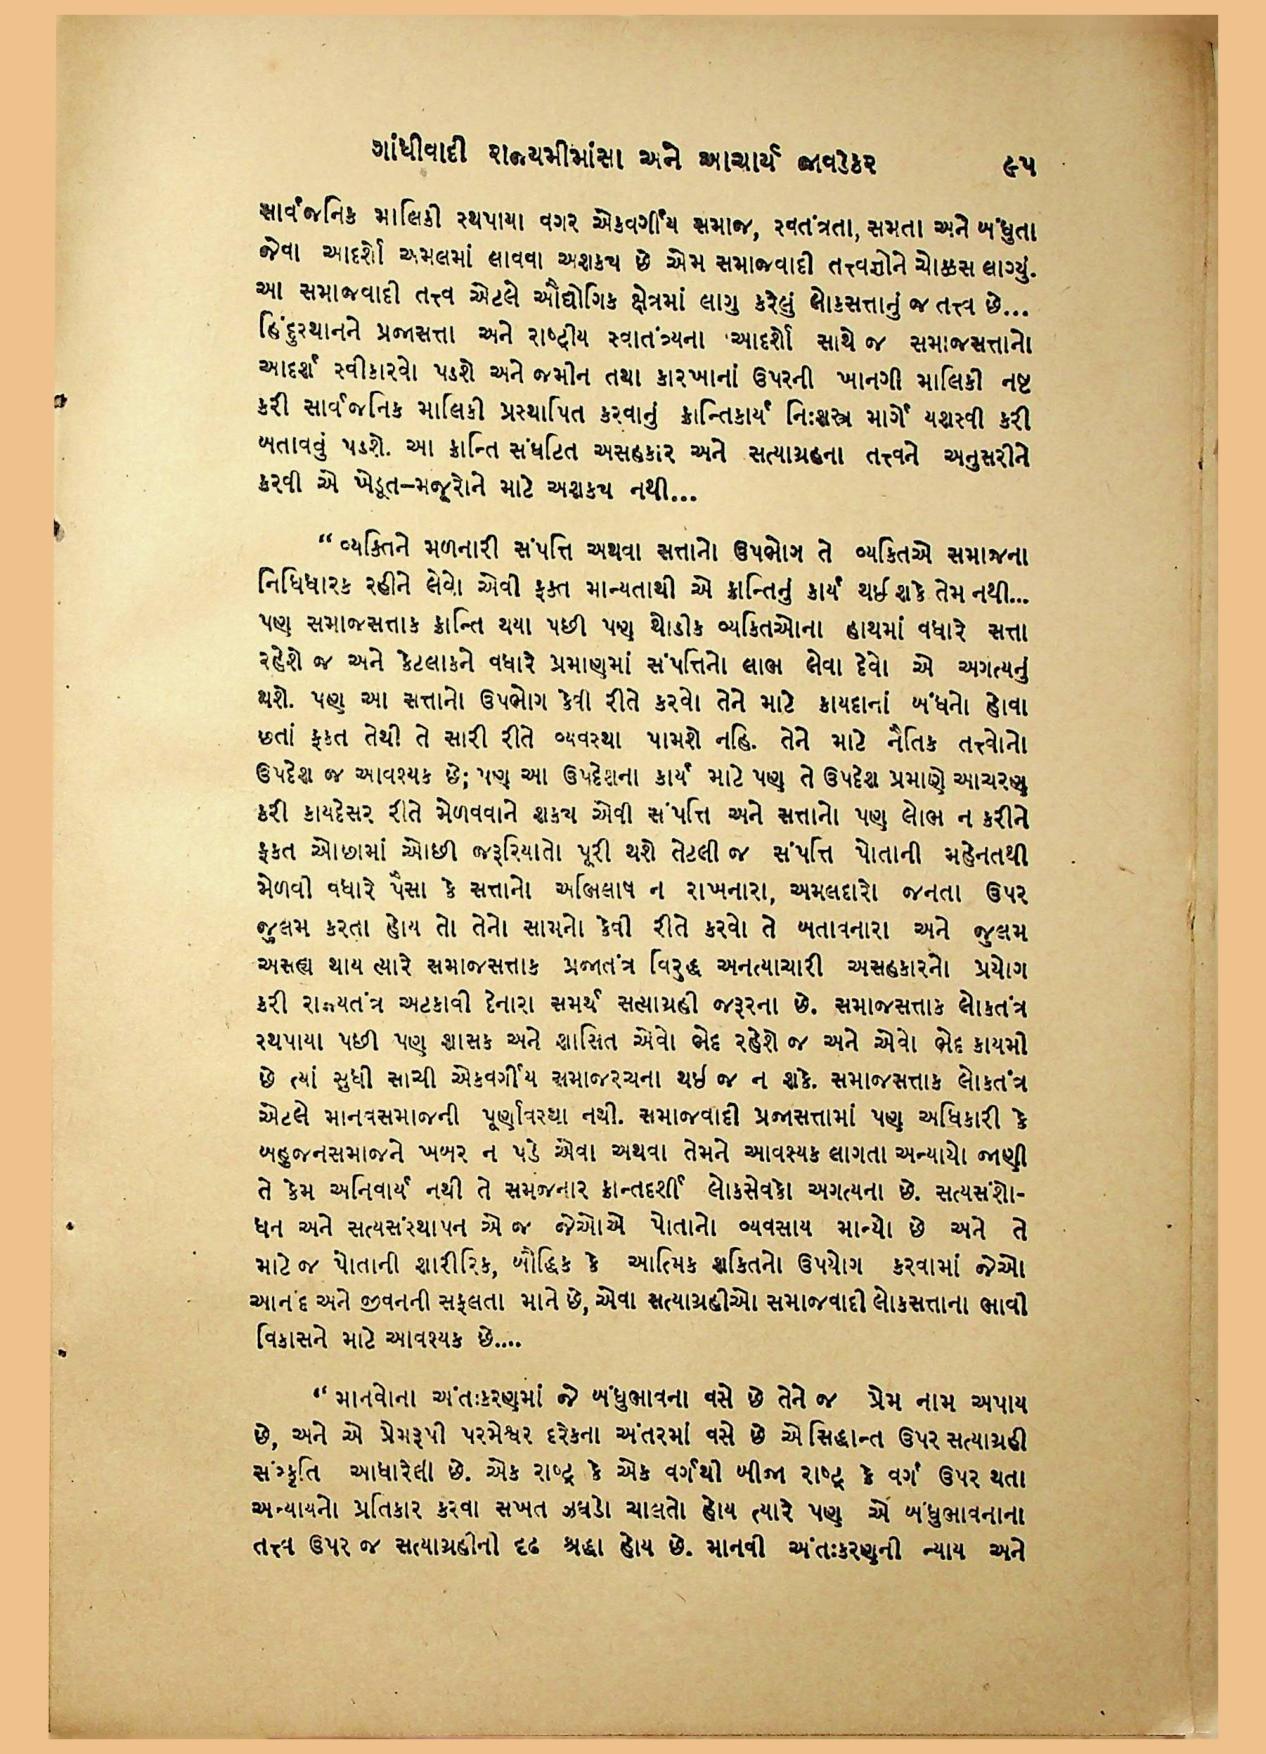 ગાંધીવાદી રાજ્યમીમાંસા અને આચાર્ય જાવડેકર ૯૫
સાર્વજનિક માલિકી સ્થપાયા વગર એકવર્ગીય સમાજ, સ્વતંત્રતા, સમતા અને બંધુતા
જેવા આદર્શો અમલમાં લાવવા અશક્ય છે એમ સમાજવાદી તત્ત્વજ્ઞોને ચોક્કસ લાગ્યું.
આ સમાજવાદી તત્ત્વ એટલે ઔદ્યોગિક ક્ષેત્રમાં લાગુ કરેલું લોકસત્તાનું જ તત્ત્વ છે...
હિંદુસ્થાનને પ્રજાસત્તા અને રાષ્ટ્રીય સ્વાતંત્ર્યના આદર્શો સાથે જ સમાજસત્તાનો
આદર્શ સ્વીકારવો પડશે અને જમીન તથા કારખાનાં ઉપરની ખાનગી માલિકી નષ્ટ
કરી સાર્વજનિક માલિકી પ્રસ્થાપિત કરવાનું ક્રાન્તિકાર્ય નિઃશસ્ત્ર માર્ગે યશસ્વી કરી
બતાવવું પડશે. આ ક્રાન્તિ સંઘટિત અસહકાર અને સત્યાગ્રહના તત્ત્વને અનુસરીને
કરવી એ ખેડૂત–મજૂરોને માટે અશક્ય નથી...
“વ્યક્તિને મળનારી સંપત્તિ અથવા સત્તાનો ઉપભોગ તે વ્યકિતએ સમાજના
નિધિધારક રહીને લેવો એવી ફક્ત માન્યતાથી એ ક્રાન્તિનું કાર્ય થઈ શકે તેમ નથી...
પણ સમાજસત્તાક ક્રાન્તિ થયા પછી પણ થોડીક વ્યકિતઓના હાથમાં વધારે સત્તા
રહેશે જ અને કેટલાકને વધારે પ્રમાણમાં સંપત્તિનો લાભ લેવા દેવો એ અગત્યનું
થશે. પણ આ સત્તાનો ઉપભોગ કેવી રીતે કરવો તેને માટે કાયદાનાં બંધનો હોવા
છતાં ફકત તેથી તે સારી રીતે વ્યવસ્થા પામશે નહિ. તેને માટે નૈતિક તત્ત્વોનો
ઉપદેશ જ આવશ્યક છે; પણ આ ઉપદેશના કાર્ય માટે પણ તે ઉપદેશ પ્રમાણે આચરણ
કરી કાયદેસર રીતે મેળવવાને શક્ય એવી સંપત્તિ અને સત્તાનો પણ લોભ ન કરીને
ફકત ઓછામાં ઓછી જરૂરિયાતો પૂરી થશે તેટલી જ સંપત્તિ પોતાની મહેનતથી
મેળવી વધારે પૈસા કે સત્તાનો અભિલાષ ન રાખનારા, અમલદારો જનતા ઉપર
જુલમ કરતા હોય તો તેનો સામનો કેવી રીતે કરવો તે બતાવનારા અને જુલમ
અસહ્ય થાય ત્યારે સમાજસત્તાક પ્રજાતંત્ર વિરુદ્ધ અનત્યાચારી અસહકારનો પ્રયોગ
કરી રાજ્યતંત્ર અટકાવી દેનારા સમર્થ સત્યાગ્રહી જરૂરના છે. સમાજસત્તાક લોકતંત્ર
સ્થપાયા પછી પણ શાસક અને શાસિત એવો ભેદ રહેશે જ અને એવો ભેદ કાયમી
છે ત્યાં સુધી સાચી એકવર્ગીય સમાજરચના થઈ જ ન શકે. સમાજસત્તાક લોકતંત્ર
એટલે માનવસમાજની પૂર્ણાવસ્થા નથી. સમાજવાદી પ્રજાસત્તામાં પણ અધિકારી કે
બહુજનસમાજને ખબર ન પડે એવા અથવા તેમને આવશ્યક લાગતા અન્યાયો જાણી
તે કેમ અનિવાર્ય નથી તે સમજનાર ક્રાન્તદર્શી લોકસેવકો અગત્યના છે. સત્યસંશો-
ધન અને સત્યસંસ્થાપન એ જ જેઓએ પોતાનો વ્યવસાય માન્યો છે અને તે
માટે જ પોતાની શારીરિક, બૌદ્ધિક કે આત્મિક શકિતનો ઉપયોગ કરવામાં જેઓ
આનંદ અને જીવનની સફલતા માને છે, એવા સત્યાગ્રહીઓ સમાજવાદી લોકસત્તાના ભાવી
વિકાસને માટે આવશ્યક છે....
“માનવોના અંતઃકરણમાં જે બંધુભાવના વસે છે તેને જ પ્રેમ નામ અપાય
છે, અને એ પ્રેમરૂપી પરમેશ્વર દરેકના અંતરમાં વસે છે એ સિદ્ધાન્ત ઉપર સત્યાગ્રહી
સંસ્કૃતિ આધારેલી છે. એક રાષ્ટ્ર કે એક વર્ગથી બીજા રાષ્ટ્ર કે વર્ગ ઉપર થતા
અન્યાયનો પ્રતિકાર કરવા સખત ઝઘડો ચાલતો હોય ત્યારે પણ એ બંધુભાવનાના
તત્ત્વ ઉપર જ સત્યાગ્રહીની દૃઢ શ્રદ્ધા હોય છે. માનવી અંતઃકરણની ન્યાય અને